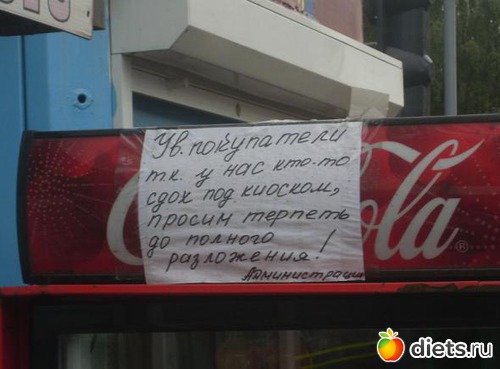 Ув. покупатели
т.к. у нас кто-то
сдох под киоском,
просим терпеть
до полного
разложения!
Администрация
Cola
®
diets.ru